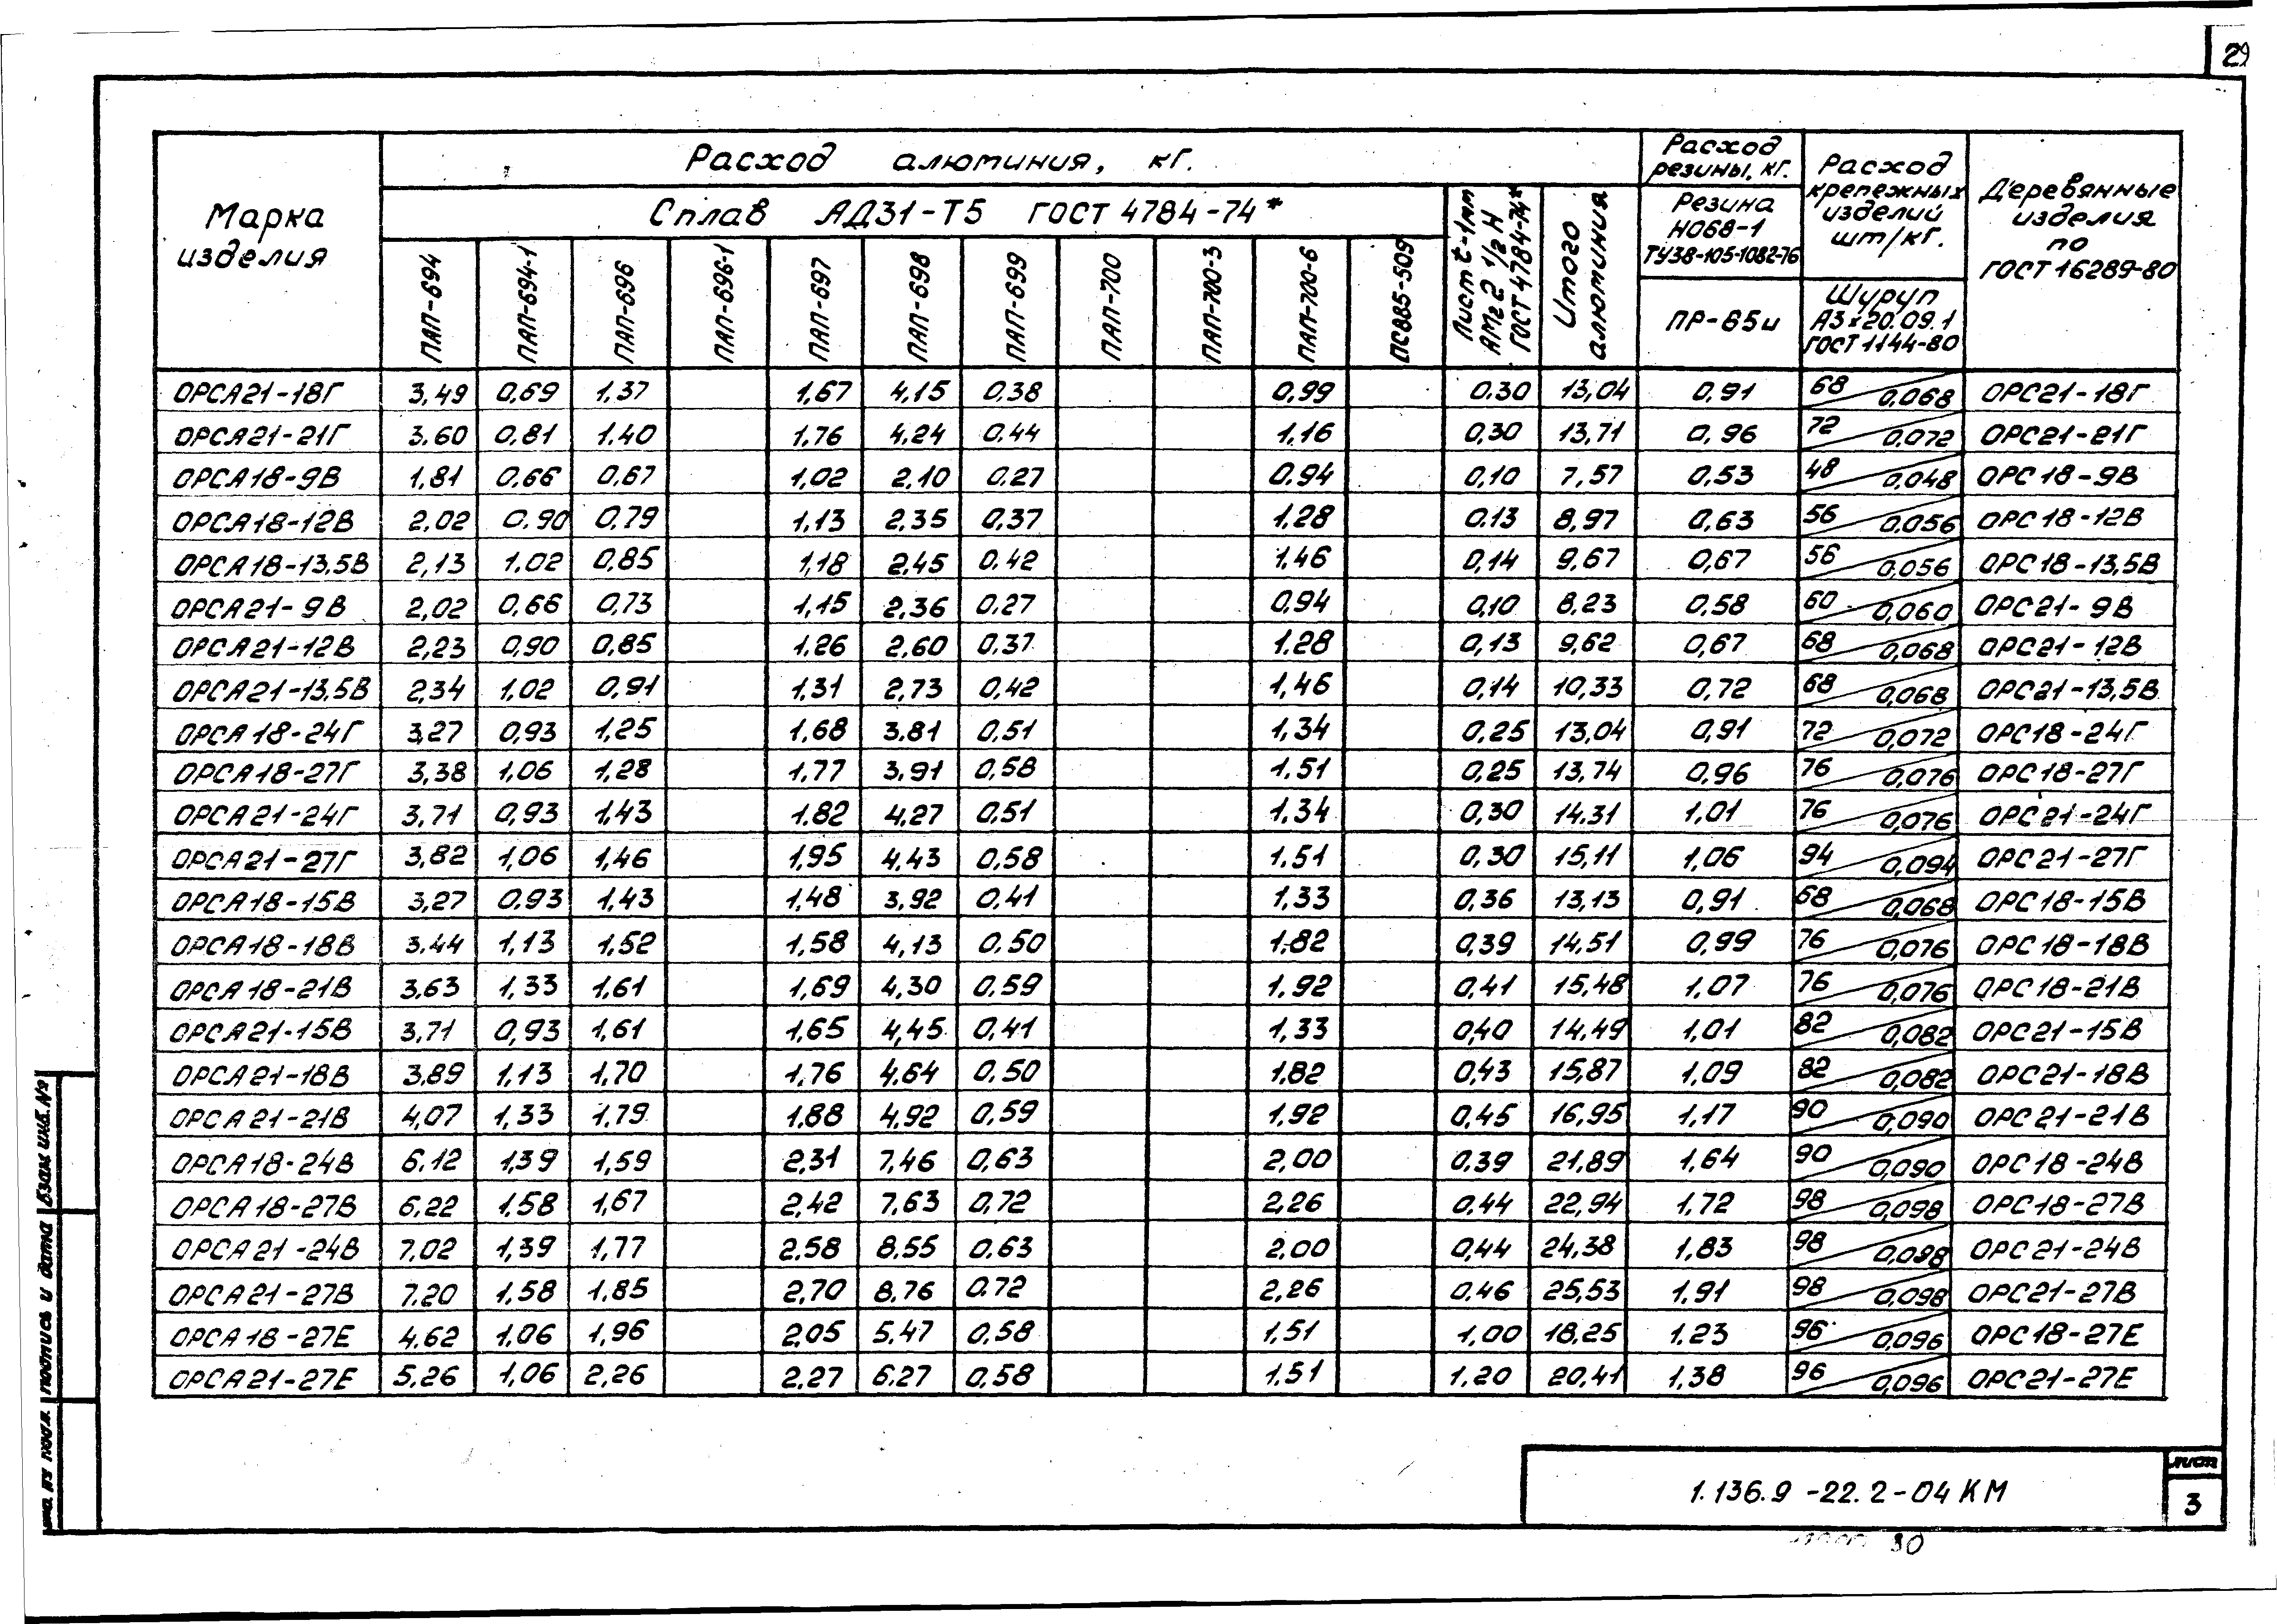 29
Марка изделия
Расход алюминия, кг.
Сплав АД31-Т5 ГОСТ 4784-74*
ПАП-694
ПАП-694-1
ПАП-696
ПАП-696-1
ПАП-697
ПАП-698
ПАП-699
ПАП-700
ПАП-700-3
ПАП-700-6
ПС885-509
Лист t-1мм АМг2 1/2 Н ГОСТ 4784-74*
Итого алюминия
Расход резины, кг.
Резина НО68-1 ТУ38-105-1082-76
ПР-65и
Расход крепежных изделий шт/кг.
Шуруп А3х20.09.1 ГОСТ 1144-80
Деревянные изделия по ГОСТ 16289-80
ОРСА21-18Г 3,49 0,69 1,37 1,67 4,15 0,38 0,99 0.30 13,04 0,91 68 0,068 ОРС21-18Г
ОРСА21-21Г 3.60 0,81 1.40 1,76 4,24 0.44 1,16 0,30 13,71 0,96 72 0,072 ОРС21-21Г
ОРСА18-9В 1,81 0,66 0,67 1,02 2,10 0,27 0.94 0,10 7,57 0,53 48 0,048 ОРС18-9В
ОРСА18-12В 2,02 0.90 0,79 1,13 2,35 0,37 1,28 0.13 8,97 0,63 56 0.056 ОРС18-12В
ОРСА18-13,5В 2,13 1,02 0,85 1,18 2,45 0,42 1,46 0,14 9,67 0,67 56 0,056 ОРС18-13,5В
ОРСА21-9В 2,02 0,66 0,73 1,15 2,36 0,27 0,94 0,10 8,23 0,58 60 0,060 ОРС21-9В
ОРСА21-12В 2,23 0,90 0,85 1,26 2,60 0,37 1,28 0,13 9,62 0,67 68 0,068 ОРС21-12В
ОРСА21-13,5В 2,34 1,02 0,91 1,31 2,73 0,42 1,46 0,14 10,33 0,72 68 0,068 ОРС21-13,5В
ОРСА18-24Г 3,27 0,93 1,25 1,68 3.81 0,51 1,34 0,25 13,04 0,91 72 0,072 ОРС18-24Г
ОРСА18-27Г 3,38 1,06 1,28 1,77 3,91 0,58 1.51 0,25 13,74 0,96 76 0,076 ОРС18-27Г
ОРСА21-24Г 3,71 0,93 1,43 1.82 4,27 0,51 1,34 0,30 14,31 1,01 76 0,076 ОРС21-24Г
ОРСА21-27Г 3,82 1,06 1,46 1,95 4,43 0,58 1,51 0,30 15,11 1,06 94 0,094 ОРС21-27Г
ОРСА18-15В 3,27 0,93 1,43 1,48 3,92 0,41 1.33 0,36 13,13 0,91 68 0,068 ОРС18-15В
ОРСА18-18В 3.44 1,13 1,52 1,58 4,13 0.50 1.82 0,39 14,51 0,99 76 0,076 ОРС18-18В
ОРСА18-21В 3,63 1,33 1,61 1,69 4,30 0,59 1.92 0,41 15,48 1,07 76 0,076 ОРС18-21В
ОРСА21-15В 3,71 0,93 1,61 1,65 4,45 0,41 1,33 0,40 14,49 1,01 82 0,082 ОРС21-15В
ОРСА21-18В 3,89 1,13 1,70 1,76 4,64 0.50 1,82 0,43 15,87 1,09 82 0,082 ОРС21-18В
ОРСА21-21В 4,07 1,33 1,79 1,88 4,92 0,59 1,92 0,45 16,95 1,17 90 0,090 ОРС21-21В
ОРСА18-24В 6.12 1,39 1,59 2,31 7,46 0,63 2,00 0.39 21,89 1,64 90 0,090 ОРС18-24В
ОРСА18-27В 6,22 1,58 1,67 2,42 7,63 0,72 2,26 0,44 22,94 1,72 98 0,098 ОРС18-27В
ОРСА21-24В 7,02 1,39 1,77 2,58 8,55 0,63 2,00 0,44 24,38 1,83 98 0,098 ОРС21-24В
ОРСА21-27В 7.20 1,58 1,85 2,70 8,76 0.72 2,26 0.46 25,53 1,91 98 0,098 ОРС21-27В
ОРСА18-27Е 4,62 1,06 1,96 2,05 5,47 0,58 1,51 1,00 18,25 1.23 96 0,096 ОРС18-27Е
ОРСА21-27Е 5,26 1,06 2,26 2,27 6.27 0,58 1,51 1.20 20,41 1,38 96 0,096 ОРС21-27Е
Взам инв.№
подпись и дата
1.136.9-22.2-04КМ
лист
3
30